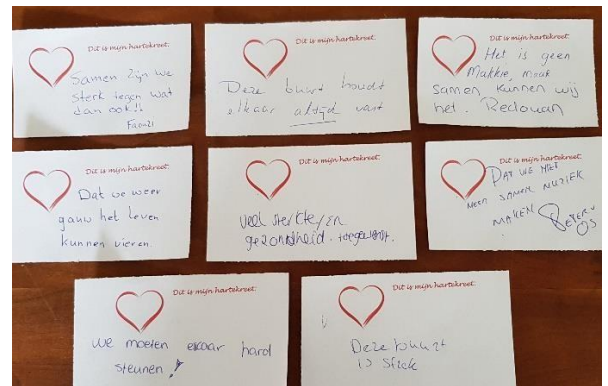 Dit is mijn hartekreet.
Samen zijn we
sterk tegen wat
dan ook!!
Dit is mijn hartekreet.
Deze buurt houdt
elkaar altijd vast
Dit is mijn hartekreet.
Het is geen
Makkie, maar
samen kunnen wij
het. Redouan
Dit is mijn hartekreet.
Dat we weer
gauw het leven
kunnen vieren.
Dit is mijn hartekreet.
Veel sterkte en
gezondheid toegewenst.
Dit is mijn hartekreet.
DAT WE
WEER SAMEN MUZIEK
MAKEN
Dit is mijn hartekreet.
We moeten elkaar hard
steunen!
Dit is mijn hartekreet.
Deze buurt
is sterk